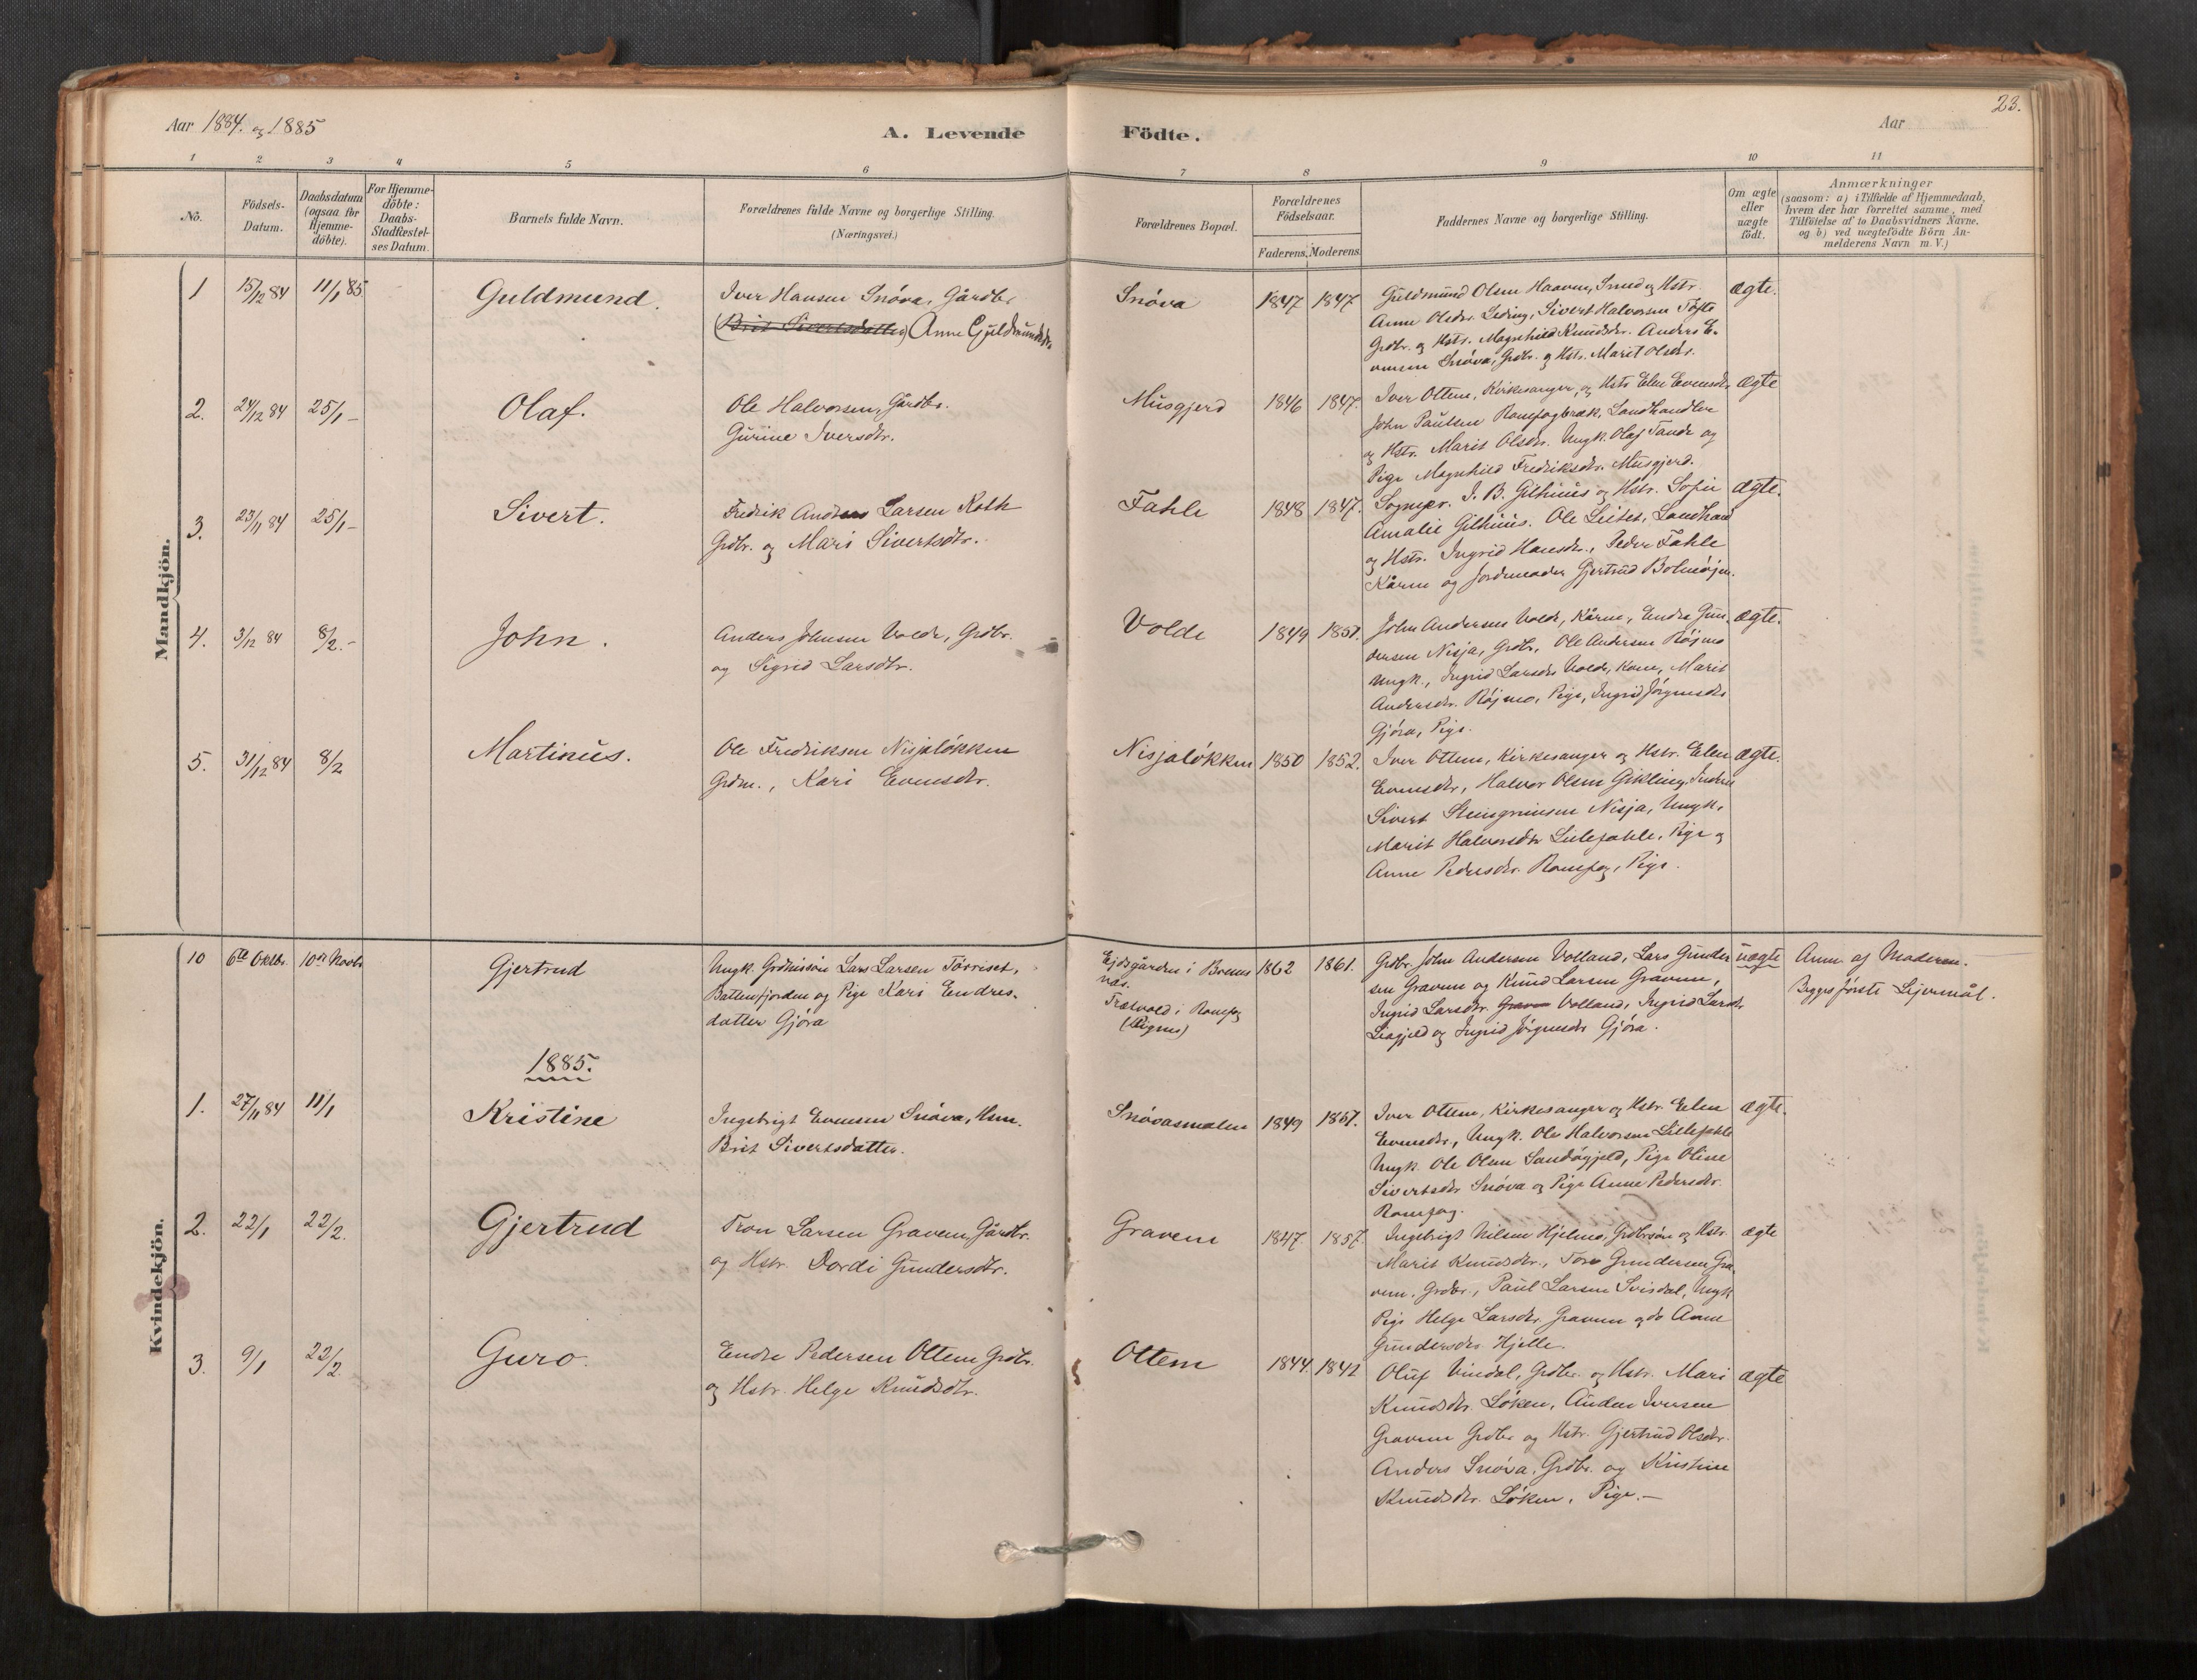 Aar 1884. og 1885
A. Levende
Födte.
Aar
23.
1 2 3 4 5 6 7 8 9 10 11
No.
Födsels-
Datum.
Daabsdatum
(ogsaa for
Hjemme-
döbte).
For Hjemme-
döbte:
Daabs-
Stadfæstel-
ses Datum.
Barnets fulde Navn.
Forældrenes fulde Navne og borgerlige Stilling.
(Næringsvei.)
Forældrenes Bopæl.
Forældrenes
Födselsaar.
Faderens. Moderens.
Faddernes Navne og borgerlige Stilling.
Om ægte
eller
uægte
födt.
Anmærkninger
(saasom: a) i Tilfælde af Hjemmedaab,
hvem der har forrettet samme, med
Tilföielse af to Daabsvidners Navne.
og b) ved uægtefödte Börn An-
melderens Navn m.V.)
Mandkjön.
1 15/12 84 11/1 85 Guldmund.
Iver Hansen Snöva, Gårdbr
(Brit Sivertsdatter) Anne Guldmundsdtr
Snöva 1847 1847
Guldmund Olsen Haaven, Smed og Hstr.
Anne Olsdr. Leding, Sivert Halvorsen Tofte
Grdbr. og Hstr. Magnhild Knudsdr. Anders E-
vensen Snöva, Grdbr. og Hstr. Marit Olsdr.
ægte.
2. 24/12 84 25/1 - Olaf.
Ole Halvorsen, Gårdbr.
Gurine Iversdtr.
Musgjerd 1846 1847.
Iver Ottem, Kirkesanger, og Hstr Elen Evensdr.
John Paulsen Romfogbræk, Landhandler
og Hstr. Marit Olsdr. Ungk. Olaf Tande og
Pige Magnhild Fredriksdr. Musgjerd.
ægte
3. 23/11 84 25/1 - Sivert.
Fredrik Anders Larsen Roth
Grdbr. og Mari Sivertsdtr.
Fahle 1848 1847.
Sognepr. J. B. Gilhuus og Hstr. Sofie
Amalie Gilhuus. Ole Leitet, Landhand
og Hstr. Ingrid Hansdr., Peder Fahle
Kårm. og Jordmoder Gjertrud Bolmöjen.
ægte.
4. 3/12 84 8/2. - John.
Anders Johnsen Volde, Grdbr.
og Sigrid Larsdtr.
Volde 1849 1851.
John Andersen Volde, Kårm., Endre Gun-
dersen Nisja, Grdbr., Ole Andersen Röjmo
Ungk., Ingrid Larsdr Volde, Kone, Marit
Andersdr. Röjmo, Pige, Ingrid Jörgensdr
Gjöra, Pige.
ægte.
5. 31/12 84 8/2 Martinus.
Ole Fredriksen Nisjalökken
Grdm., Kari Evensdr.
Nisjalökken 1850 1852.
Iver Ottem, Kirkesanger og Hstr. Elen
Evensdr, Halvor Olsen Gikling, Inderst
Sivert Steingrimsen Nisja, Ungk.
Marit Halvorsdtr Lillefahle, Pige og
Anne Pedersdr. Romfog, Pige.
ægte.
Kvindekjön.
10 6te Oktbr. 10de Novbr Gjertrud
Ungk. Grdmssön Lars Larsen Törriset,
Battenfjorden og Pige Kari Endres-
datter Gjöra
Ejdsgården i Brems
næs.
Trætvold i Romfog
(Pigens)
1862 1861.
Grdbr. John Andersen Volland, Lars Gunder
sen Gravem og Knud Larsen Gravem,
Ingrid Larsdtr. Gravem Volland, Ingrid Larsdtr.
Liagjeld og Ingrid Jörgensdr Gjöra.
uægte
Anm. af Moderen.
Begges förste Lejermål.
1885.
1. 27/11 84 11/1 Kristine
Ingebrigt Evensen Snöva, Hsm.
Brit Sivertsdatter.
Snövasmolen 1849 1851.
Iver Ottem, Kirkesanger og Hstr. Elen
Evensdr., Ungk. Ole Halvorsen Lillefahle
Ungk. Ole Olsen Sandågjeld, Pige Oline
Sivertsdr Snöva og Pige Anne Pedersdr.
Romfog.
ægte.
2. 22/1 22/2. Gjertrud
Tron Larsen Gravem, Gårdbr.
og Hstr. Dordi Gundersdtr.
Gravem 1847 1857.
Ingebrigt Nilsen Hjelmo, Grdbrsön og Hstr.
Marit Knudsdtr., Tore Gundersen Gra-
vem, Grdbr., Paul Larsen Svisdal, Ungk
Pige Helge Larsdtr. Gravem og do Anne
Gundersdr. Hjelle.
ægte
3. 9/1 22/2. Guro.
Endre Pedersen Ottem Grdbr.
og Hstr. Helge Knudsdtr.
Ottem 1844. 1842
Oluf Vindal, Grdbr. og Hstr. Mari
Knudsdtr. Löken, Auden Iversen
Gravem Grdbr og Hstr. Gjertrud Olsdtr.
Anders Snöva, Grdbr. og Kristine
Knudsdtr. Löken, Pige. -
ægte